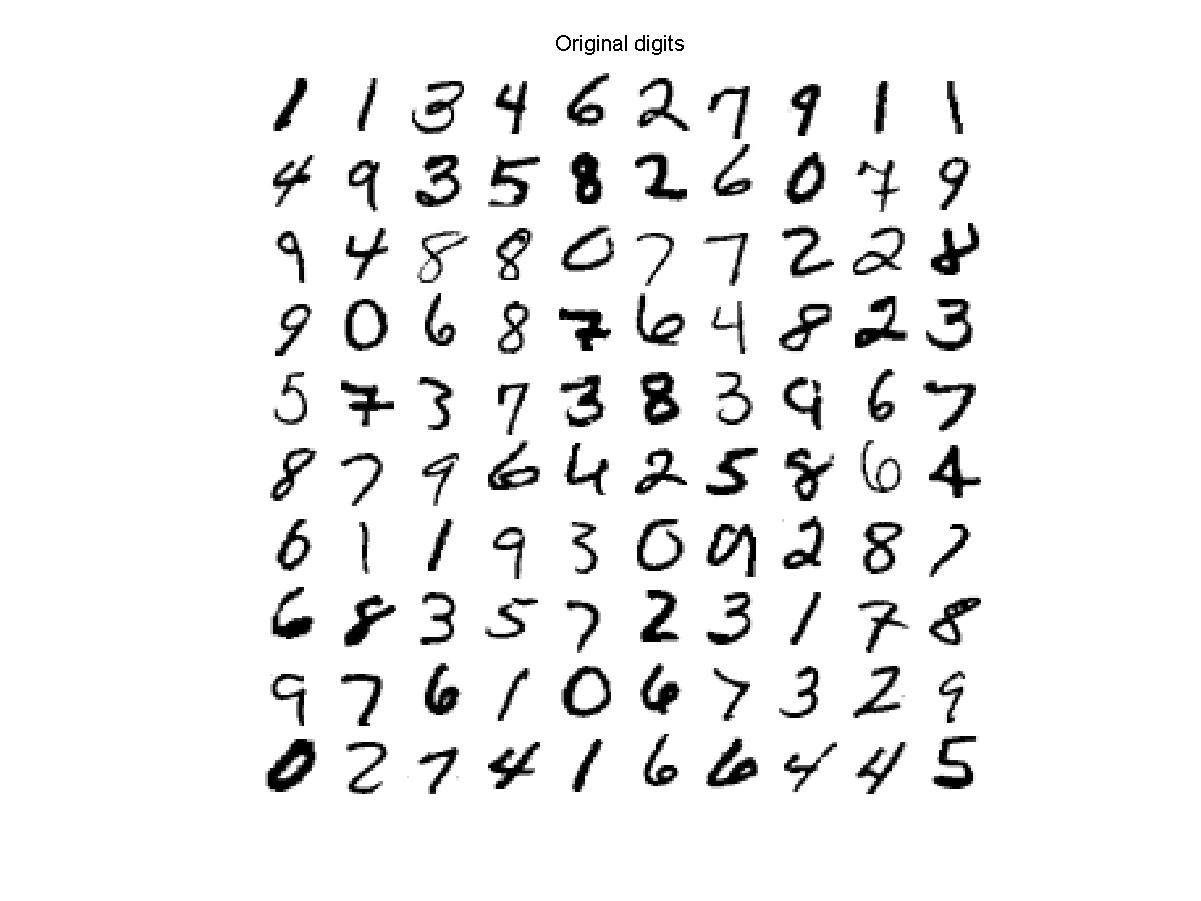 Original digits
1 1 3 4 6 2 7 9 1 1
4 9 3 5 8 2 6 0 7 9
9 4 8 8 0 7 7 2 2 8
9 0 6 8 7 6 4 8 2 3
5 7 3 7 3 8 3 9 6 7
8 7 9 6 4 2 5 8 6 4
6 1 1 9 3 0 9 2 8 7
6 8 3 5 7 2 3 1 7 8
9 7 6 1 0 6 7 3 2 9
0 2 7 4 1 6 6 4 4 5